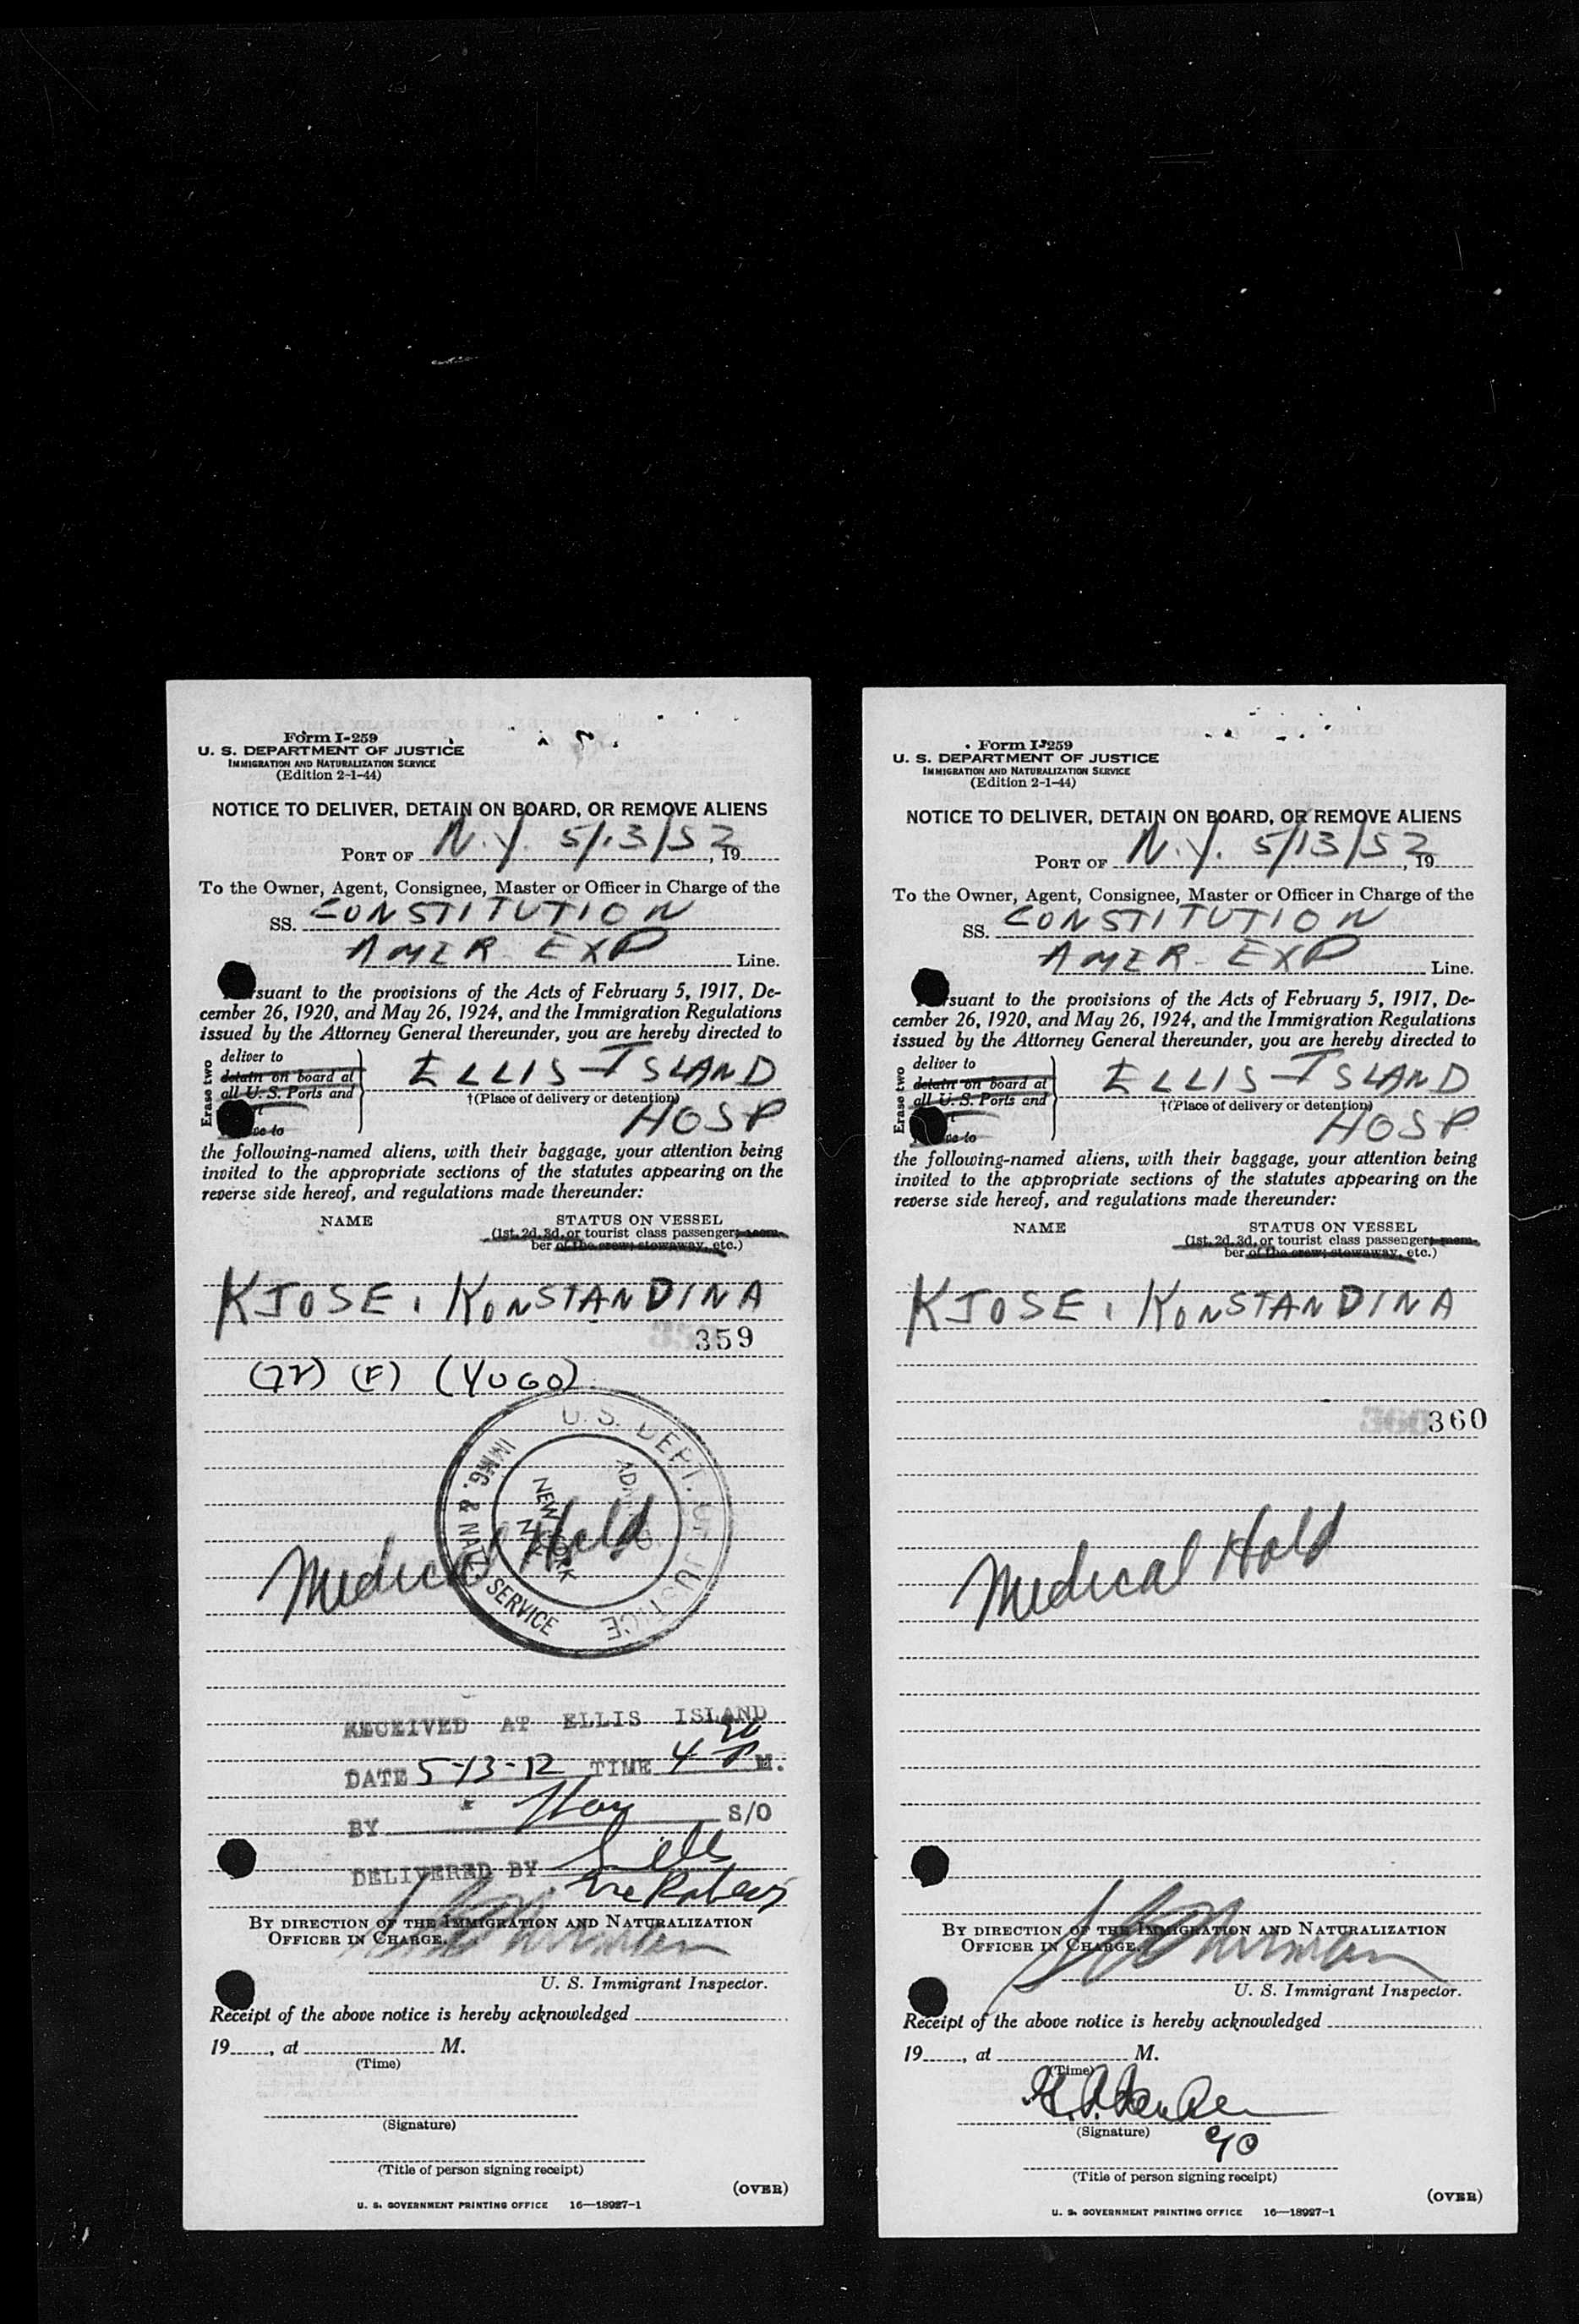 Form I-259
U. S. DEPARTMENT OF JUSTICE
IMMIGRATION AND NATURALIZATION SERVICE
(Edition 2-1-44)
NOTICE TO DELIVER, DETAIN ON BOARD, OR REMOVE ALIENS
PORT OF N.Y. 5/13/52, 19
To the Owner, Agent, Consignee, Master or Officer in Charge of the
SS. CONSTITUTION
AMER EXP Line.
suant to the provisions of the Acts of February 5, 1917, De-
cember 26, 1920, and May 26, 1924, and the Immigration Regulations
issued by the Attorney General thereunder, you are hereby directed to
Erase two
deliver to
detain on board at
all U. S. Ports and
ELLIS ISLAND
†(Place of delivery or detention)
HOSP
the following-named aliens, with their baggage, your attention being
invited to the appropriate sections of the statutes appearing on the
reverse side hereof, and regulations made thereunder:
NAME STATUS ON VESSEL
(1st, 2d, 3d, or tourist class passenger; mem-
ber of the crew; stowaway, etc.)
KJOSE, KONSTANDINA
359
(72) (F) (YUGO)
U. S. DEPT. OF JUSTICE
IMMG. & NATZ. SERVICE
NEW YORK
Medical Hold
RECEIVED AT ELLIS ISLAND
DATE 5-13-52 TIME 4 30 P M.
BY S/O
DELIVERED BY
BY DIRECTION OF THE IMMIGRATION AND NATURALIZATION
OFFICER IN CHARGE.
U. S. Immigrant Inspector.
Receipt of the above notice is hereby acknowledged
19, at M.
(Time)
(Signature)
(Title of person signing receipt)
(OVER)
U. S. GOVERNMENT PRINTING OFFICE 16—18927-1
Form I-259
U. S. DEPARTMENT OF JUSTICE
IMMIGRATION AND NATURALIZATION SERVICE
(Edition 2-1-44)
NOTICE TO DELIVER, DETAIN ON BOARD, OR REMOVE ALIENS
PORT OF N.Y. 5/13/52, 19
To the Owner, Agent, Consignee, Master or Officer in Charge of the
SS. CONSTITUTION
AMER EXP Line.
suant to the provisions of the Acts of February 5, 1917, De-
cember 26, 1920, and May 26, 1924, and the Immigration Regulations
issued by the Attorney General thereunder, you are hereby directed to
Erase two
deliver to
detain on board at
all U. S. Ports and
ELLIS ISLAND
†(Place of delivery or detention)
HOSP
the following-named aliens, with their baggage, your attention being
invited to the appropriate sections of the statutes appearing on the
reverse side hereof, and regulations made thereunder:
NAME STATUS ON VESSEL
(1st, 2d, 3d, or tourist class passenger; mem-
ber of the crew; stowaway, etc.)
KJOSE, KONSTANDINA
360
Medical Hold
BY DIRECTION OF THE IMMIGRATION AND NATURALIZATION
OFFICER IN CHARGE.
U. S. Immigrant Inspector.
Receipt of the above notice is hereby acknowledged
19, at M.
(Time)
(Signature)
(Title of person signing receipt)
(OVER)
U. S. GOVERNMENT PRINTING OFFICE 16—18927-1